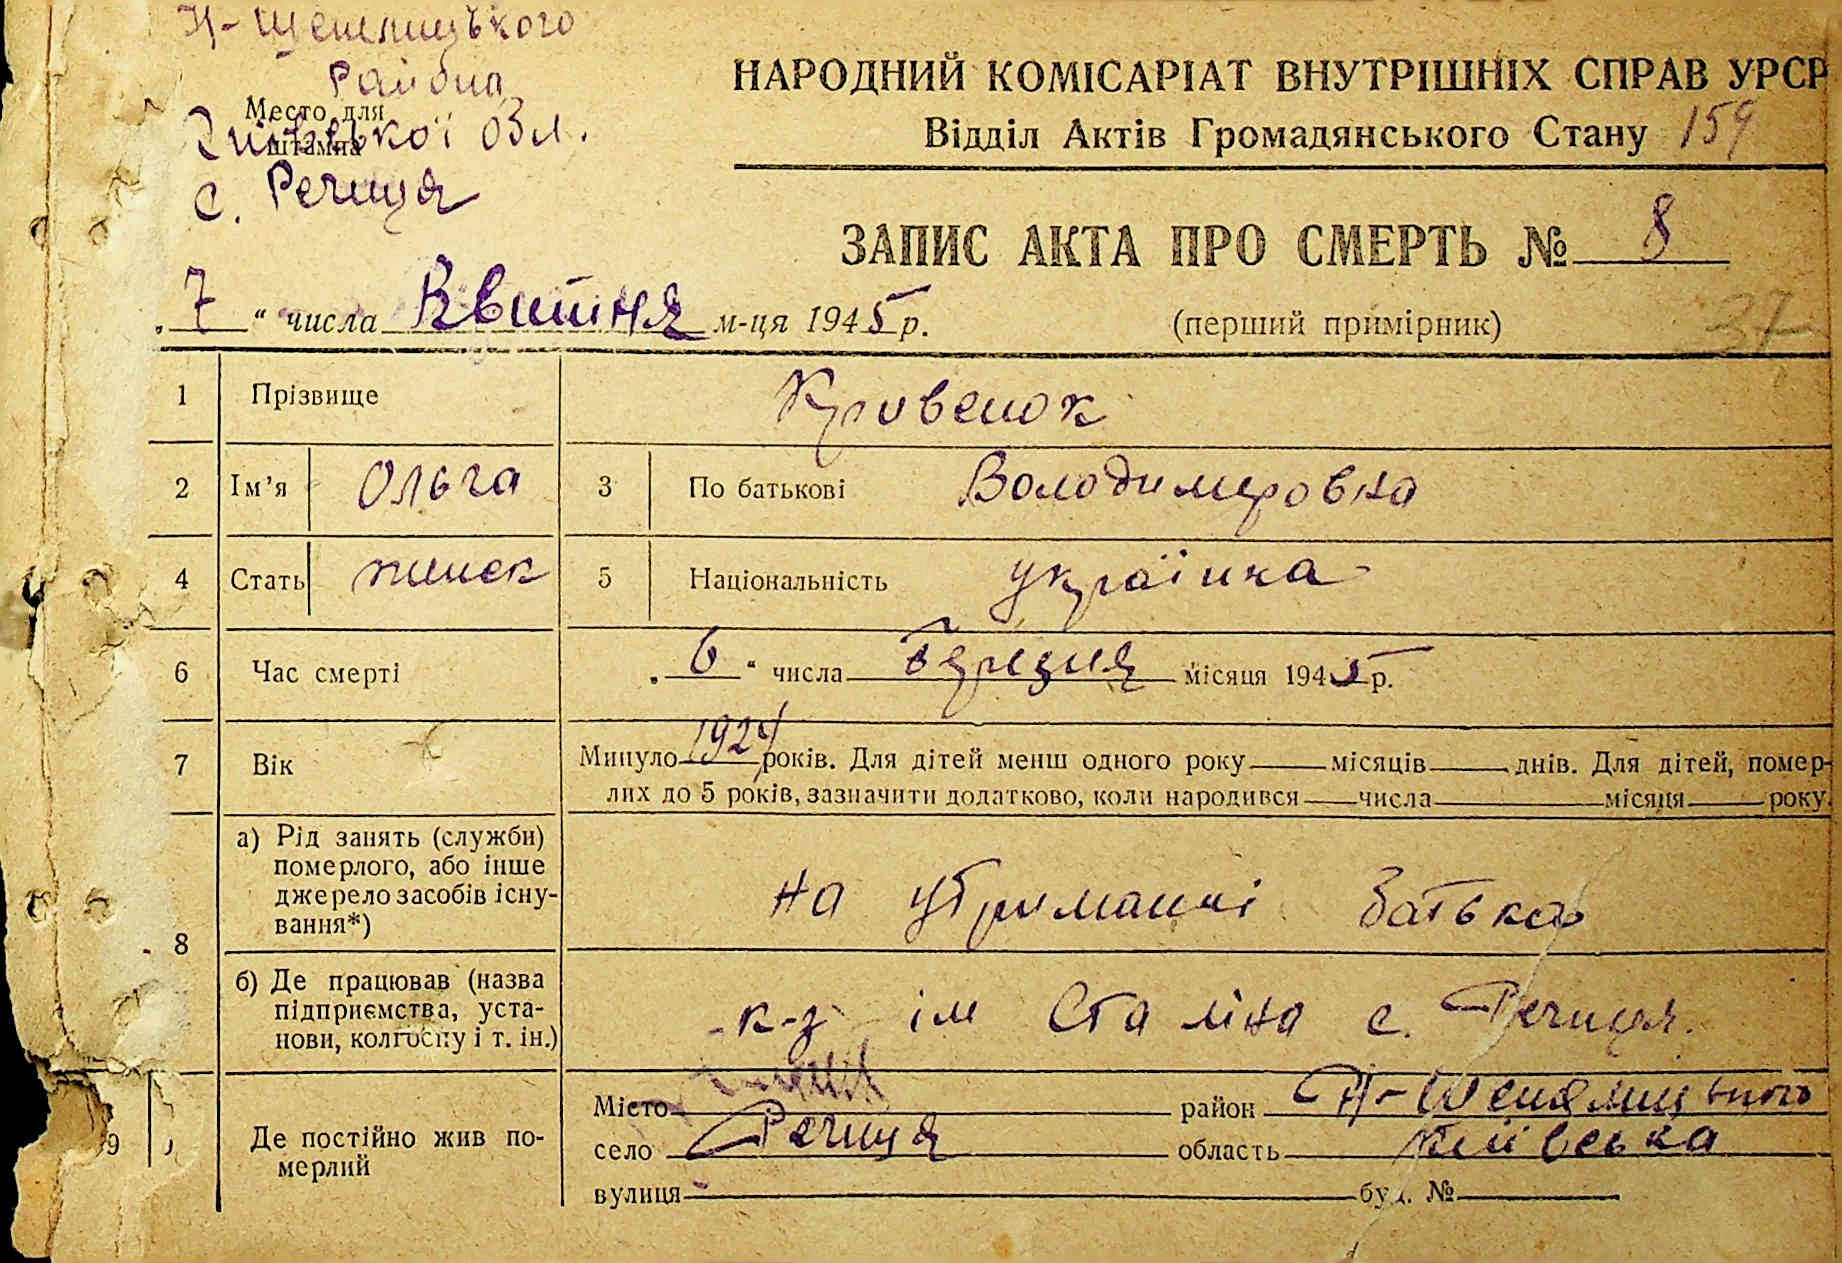 Н-Шепелицького
Район
Место для
штампа
Київської обл.
с. Речиця
НАРОДНИЙ КОМІСАРІАТ ВНУТРІШНІХ СПРАВ УРСР
Відділ Актів Громадянського Стану 159
ЗАПИС АКТА ПРО СМЕРТЬ № 8
„ 7 “ числа Квитня м-ця 1945 р.
(перший примірник) 37
1 Прізвище Кривенок
2 Ім’я Ольга 3 По батькові Володимировна
4 Стать жинск 5 Національність українка
6 Час смерті „ 6 “ числа Березня місяця 1945 р.
7 Вік Минуло 1924 років. Для дітей менш одного року місяців днів. Для дітей, помер-
лих до 5 років, зазначити додатково, коли народився числа місяця року.
8 а) Рід занять (служби)
померлого, або інше
джерело засобів існу-
вання*)
на утриманні батька
б) Де працював (назва
підприємства, уста-
нови, колгоспу і т. ін.)
к-з ім Сталіна с. Речиця.
9 Де постійно жив по-
мерлий
Місто район Н-Шепелицького
село Речиця область київська
вулиця буд. №